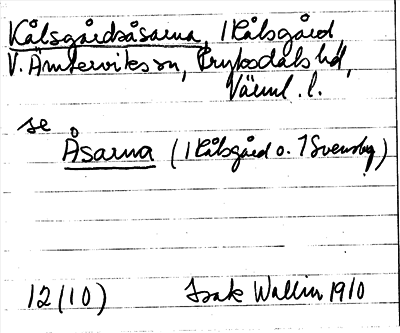 Kålsgårdsåsarna, 1 Kålsgård
V. Ämterviks sn, Fryksdals hd,
Värml. l.
se
Åsarna (1 Kålsgård o. 1 Svensby)
12(10) Isak Wallin 1910